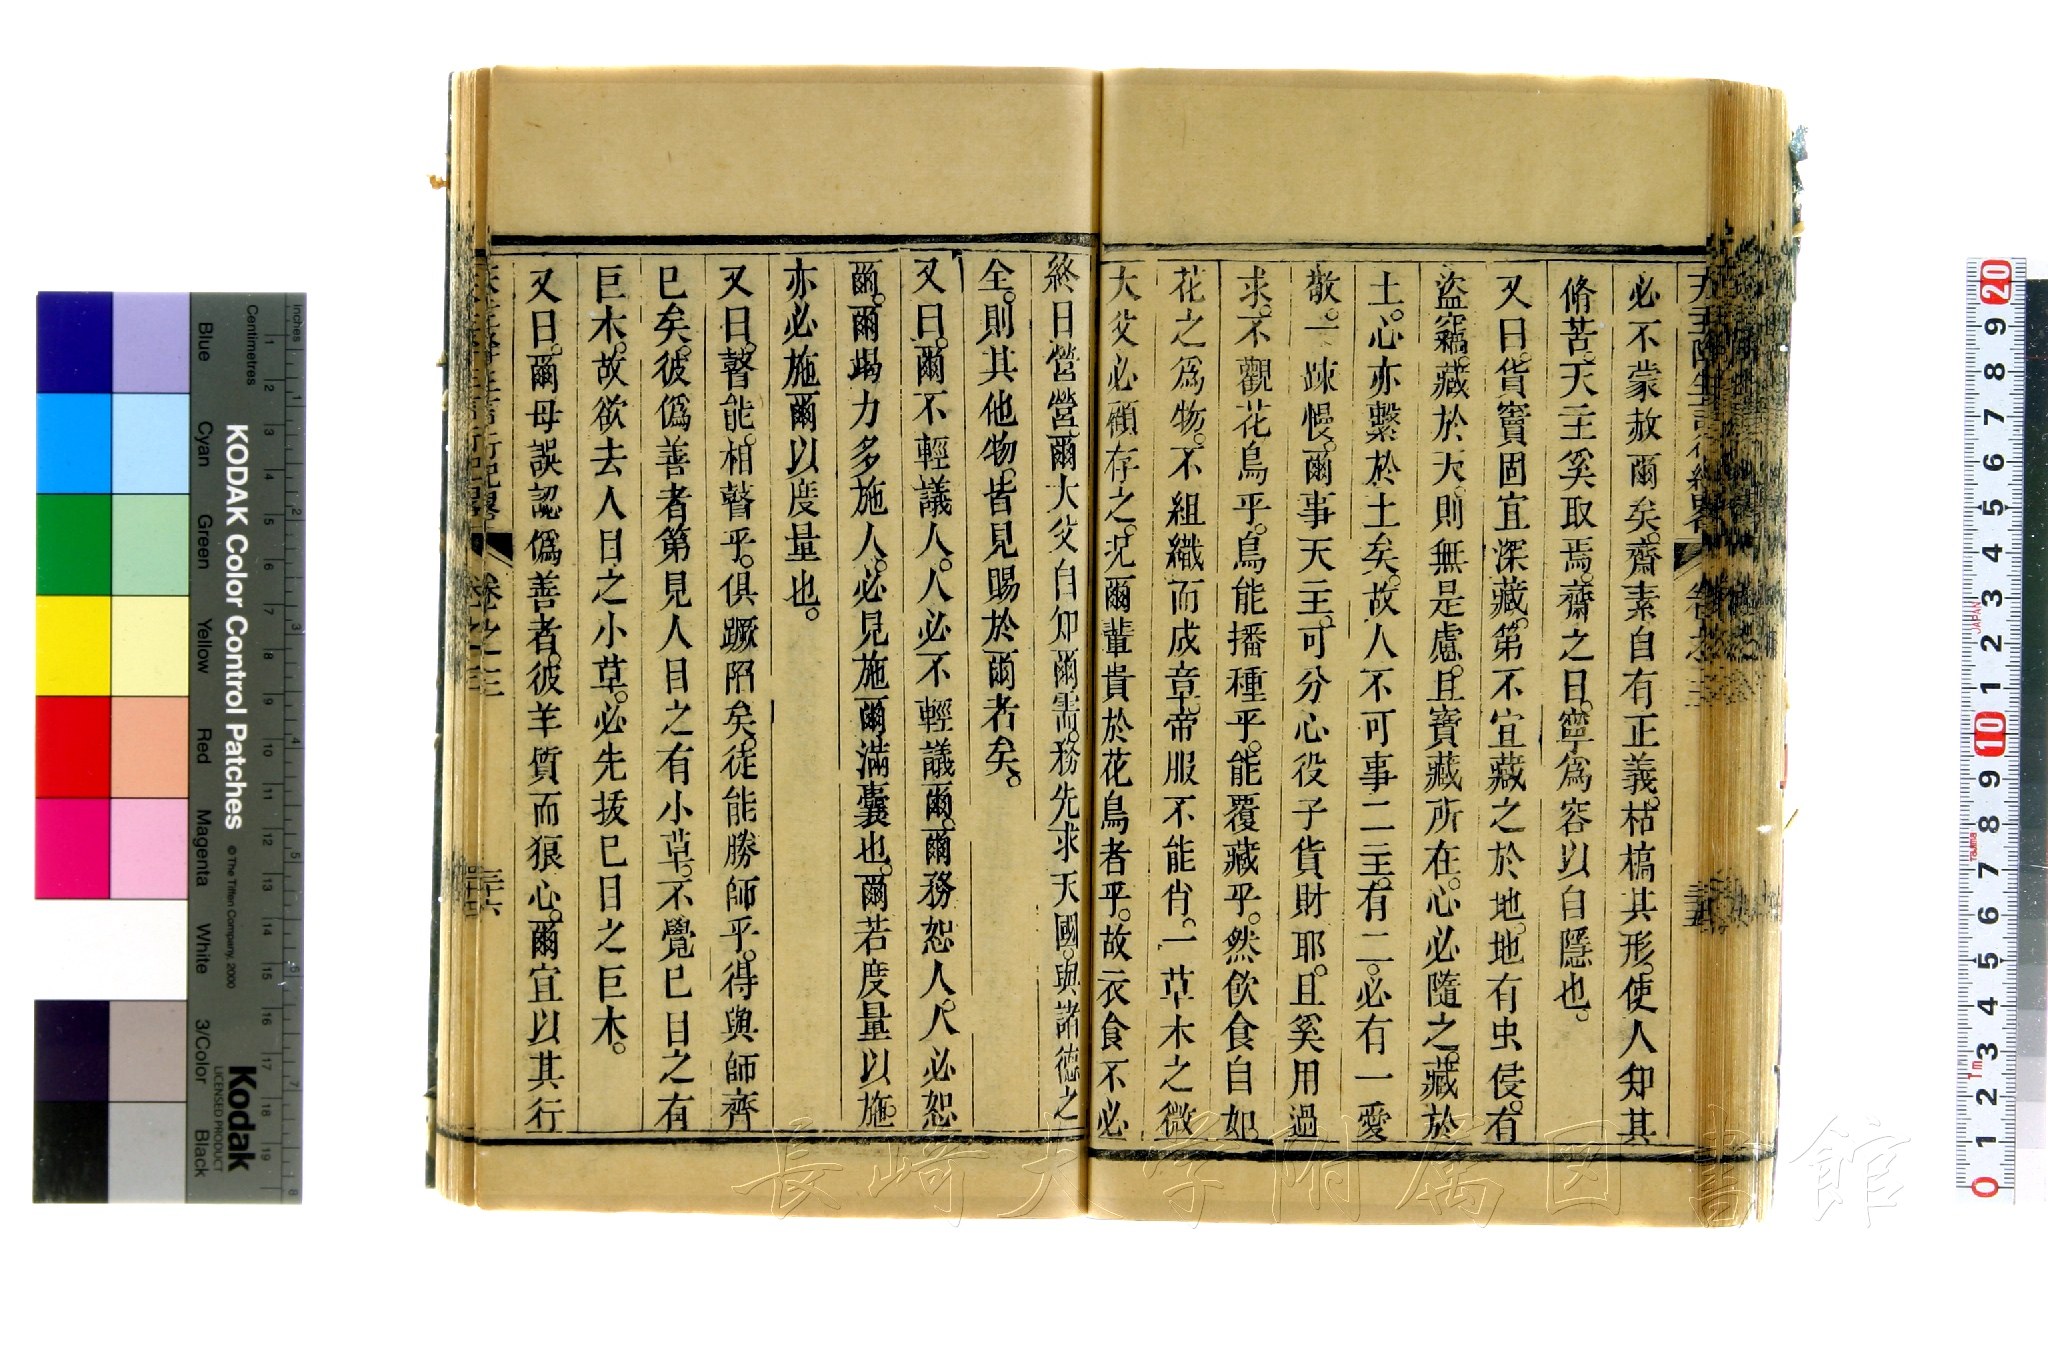 必不蒙赦爾矣。齋素自有正義。枯槁其形。使人知其
脩苦。天主奚取焉。齋之日。寧爲容以自隱也。
又曰。貨寶固宜深藏。第不宜藏之於地。地有虫侵。有
盜竊。藏於天。則無是慮。且寶藏所在。心必隨之。藏於
土。心亦繫於土矣。故人不可事二主。有二。必有一愛
敬。一疎慢。爾事天主。可分心役子貨財耶。且奚用過
求。不觀花鳥乎。鳥能播種乎。能覆藏乎。然飲食自如。
花之爲物。不組織而成章。帝服不能肖。一草木之微
大父必顧存之。况爾輩貴於花鳥者乎。故衣食不必
終日營營。爾大父自知爾需。務先求天國。與諸德之
全。則其他物。皆見賜於爾者矣。
又曰。爾不輕議人。人必不輕議爾。爾務恕人。人必恕
爾。爾竭力多施人。必見施爾滿囊也。爾若度量以施。
亦必施爾以度量也。
又曰。瞽能相瞽乎。俱蹶陷矣。徒能勝師乎。得與師齊
已矣。彼僞善者第見人目之有小草。不覺己目之有
巨木。故欲去人目之小草。必先拔己目之巨木。
又曰。爾母誤認僞善者。彼羊質而狼心。爾宜以其行
卷之三
三十六
KODAK Color Control Patches
© The Tiffen Company, 2000
Kodak
LICENSED PRODUCT
Inches
Centimetres
Blue
Cyan
Green
Yellow
Red
Magenta
White
3/Color
Black
長崎大学附属図書館
JAPAN